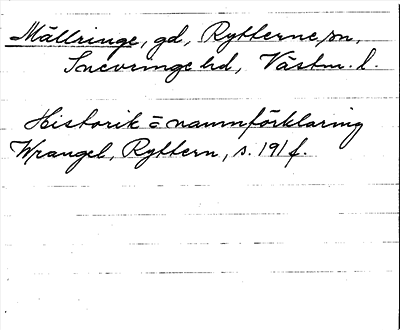 Mällringe, gd, Rytterne sn,
Snevringe hd, Västm. l.
Historik o namnförklaring
Wrangel, Ryttern, s. 191 f.